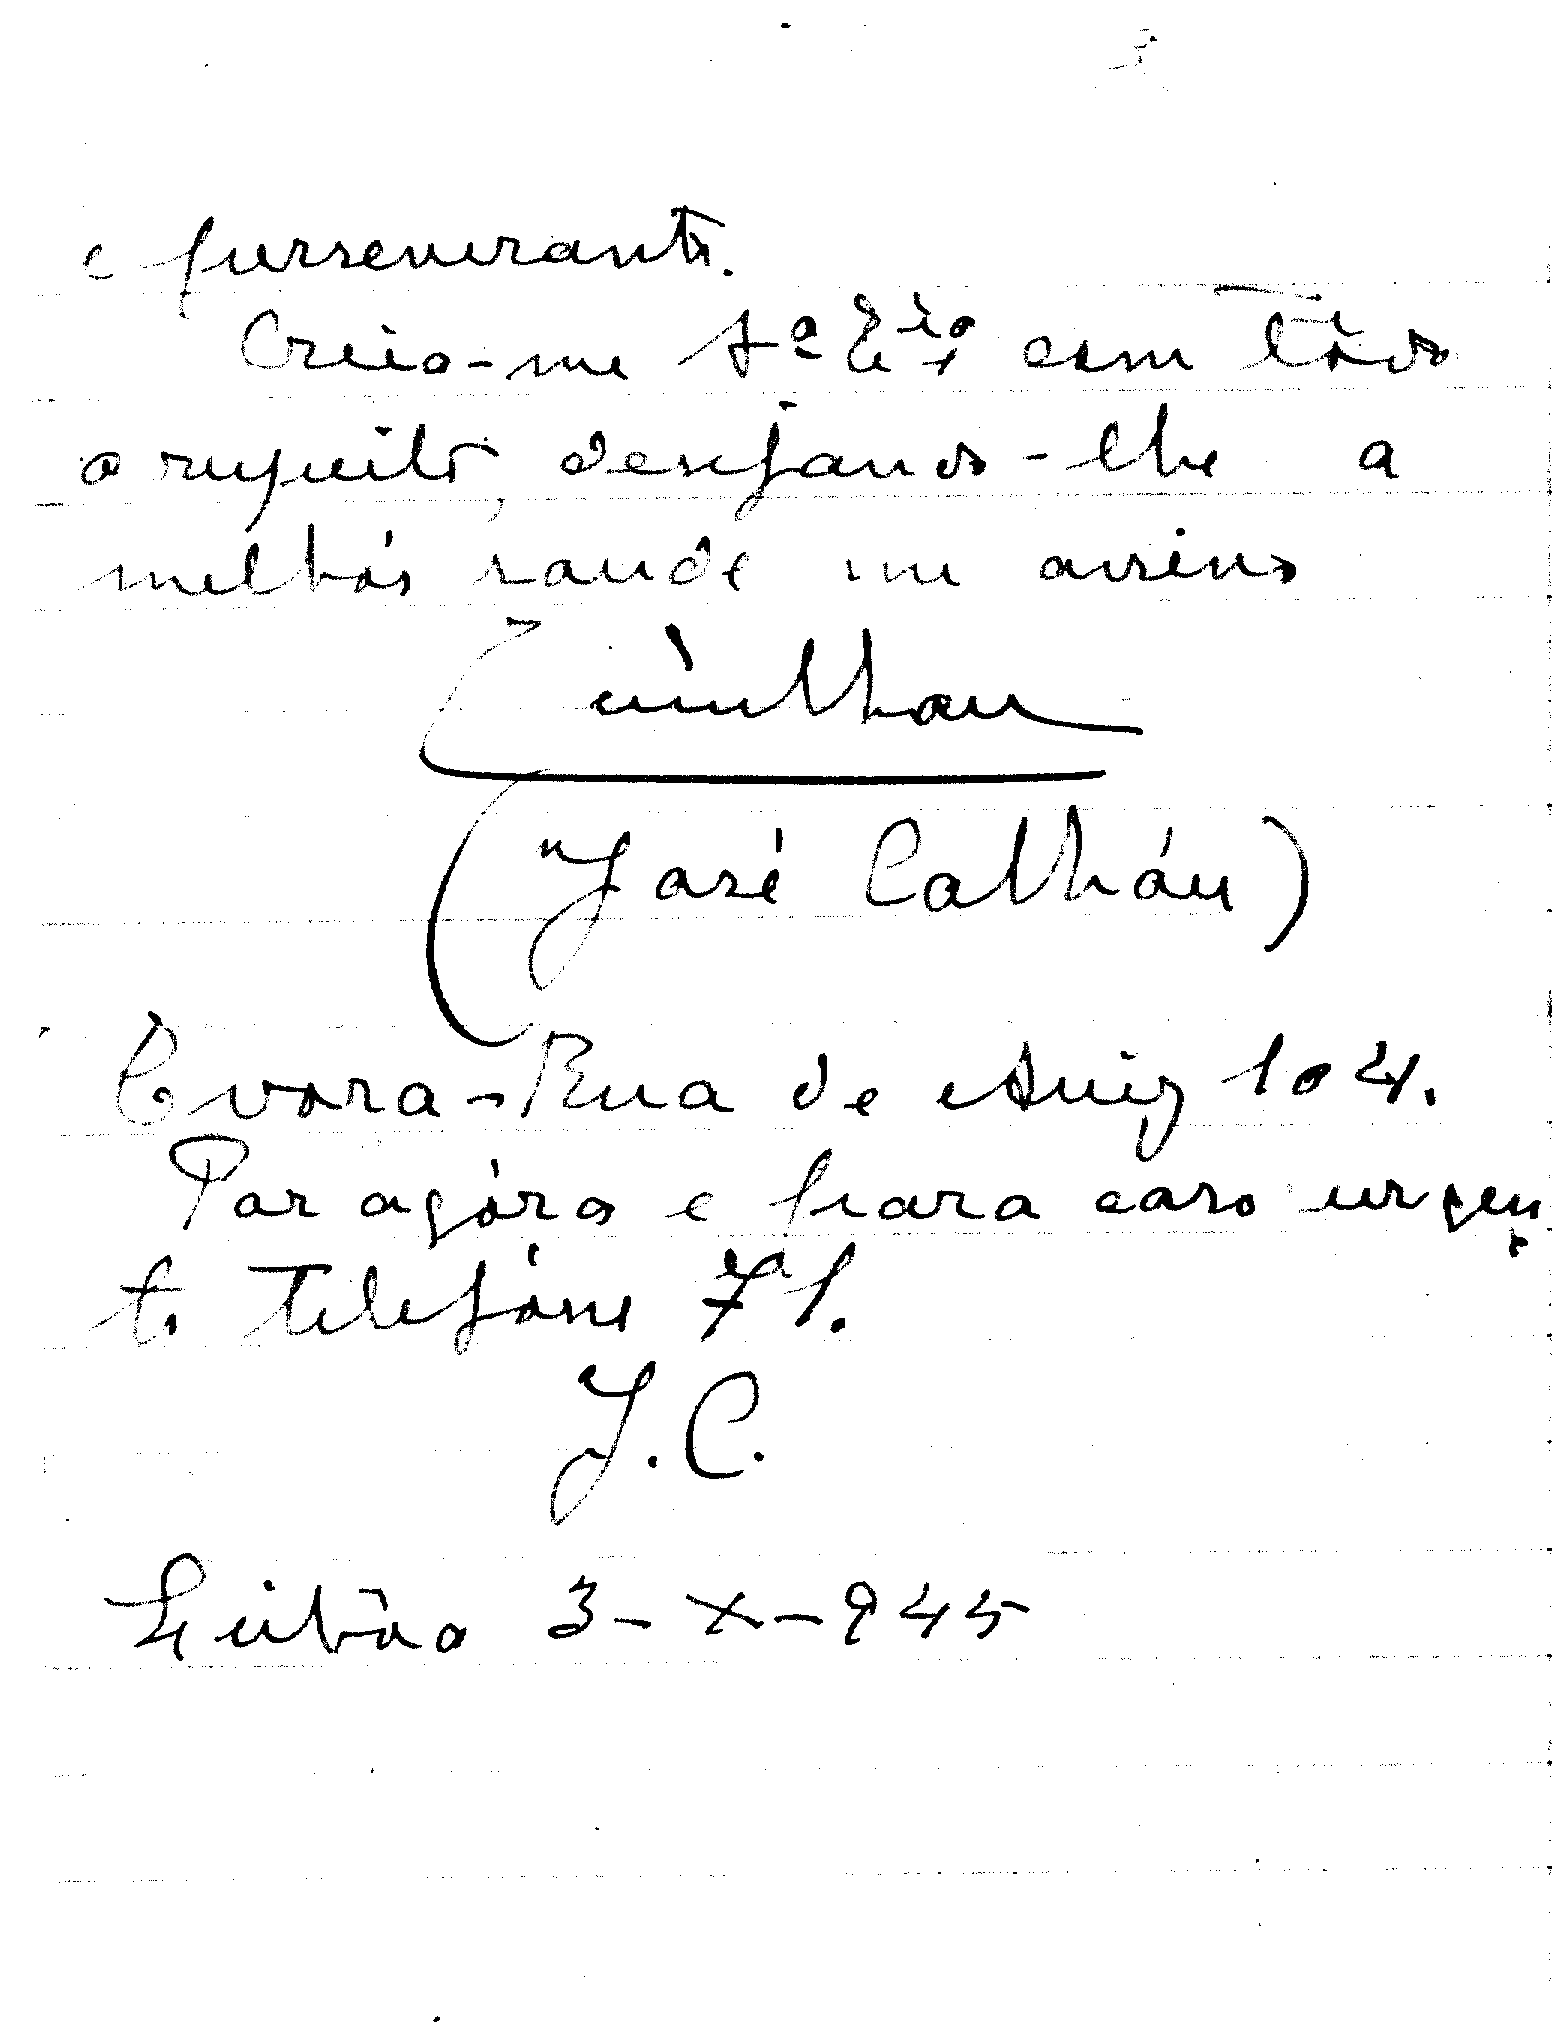 e perseverante.
Creia-me Sª Exª com todo
o respeito, desejando-lhe a
melhor saude me assino
(José Calháu)
Evora-Rua de Aviz 104.
Por agóra e para caso urgen
te telefóne 791.
J.C.
Lisbôa 3-X-945